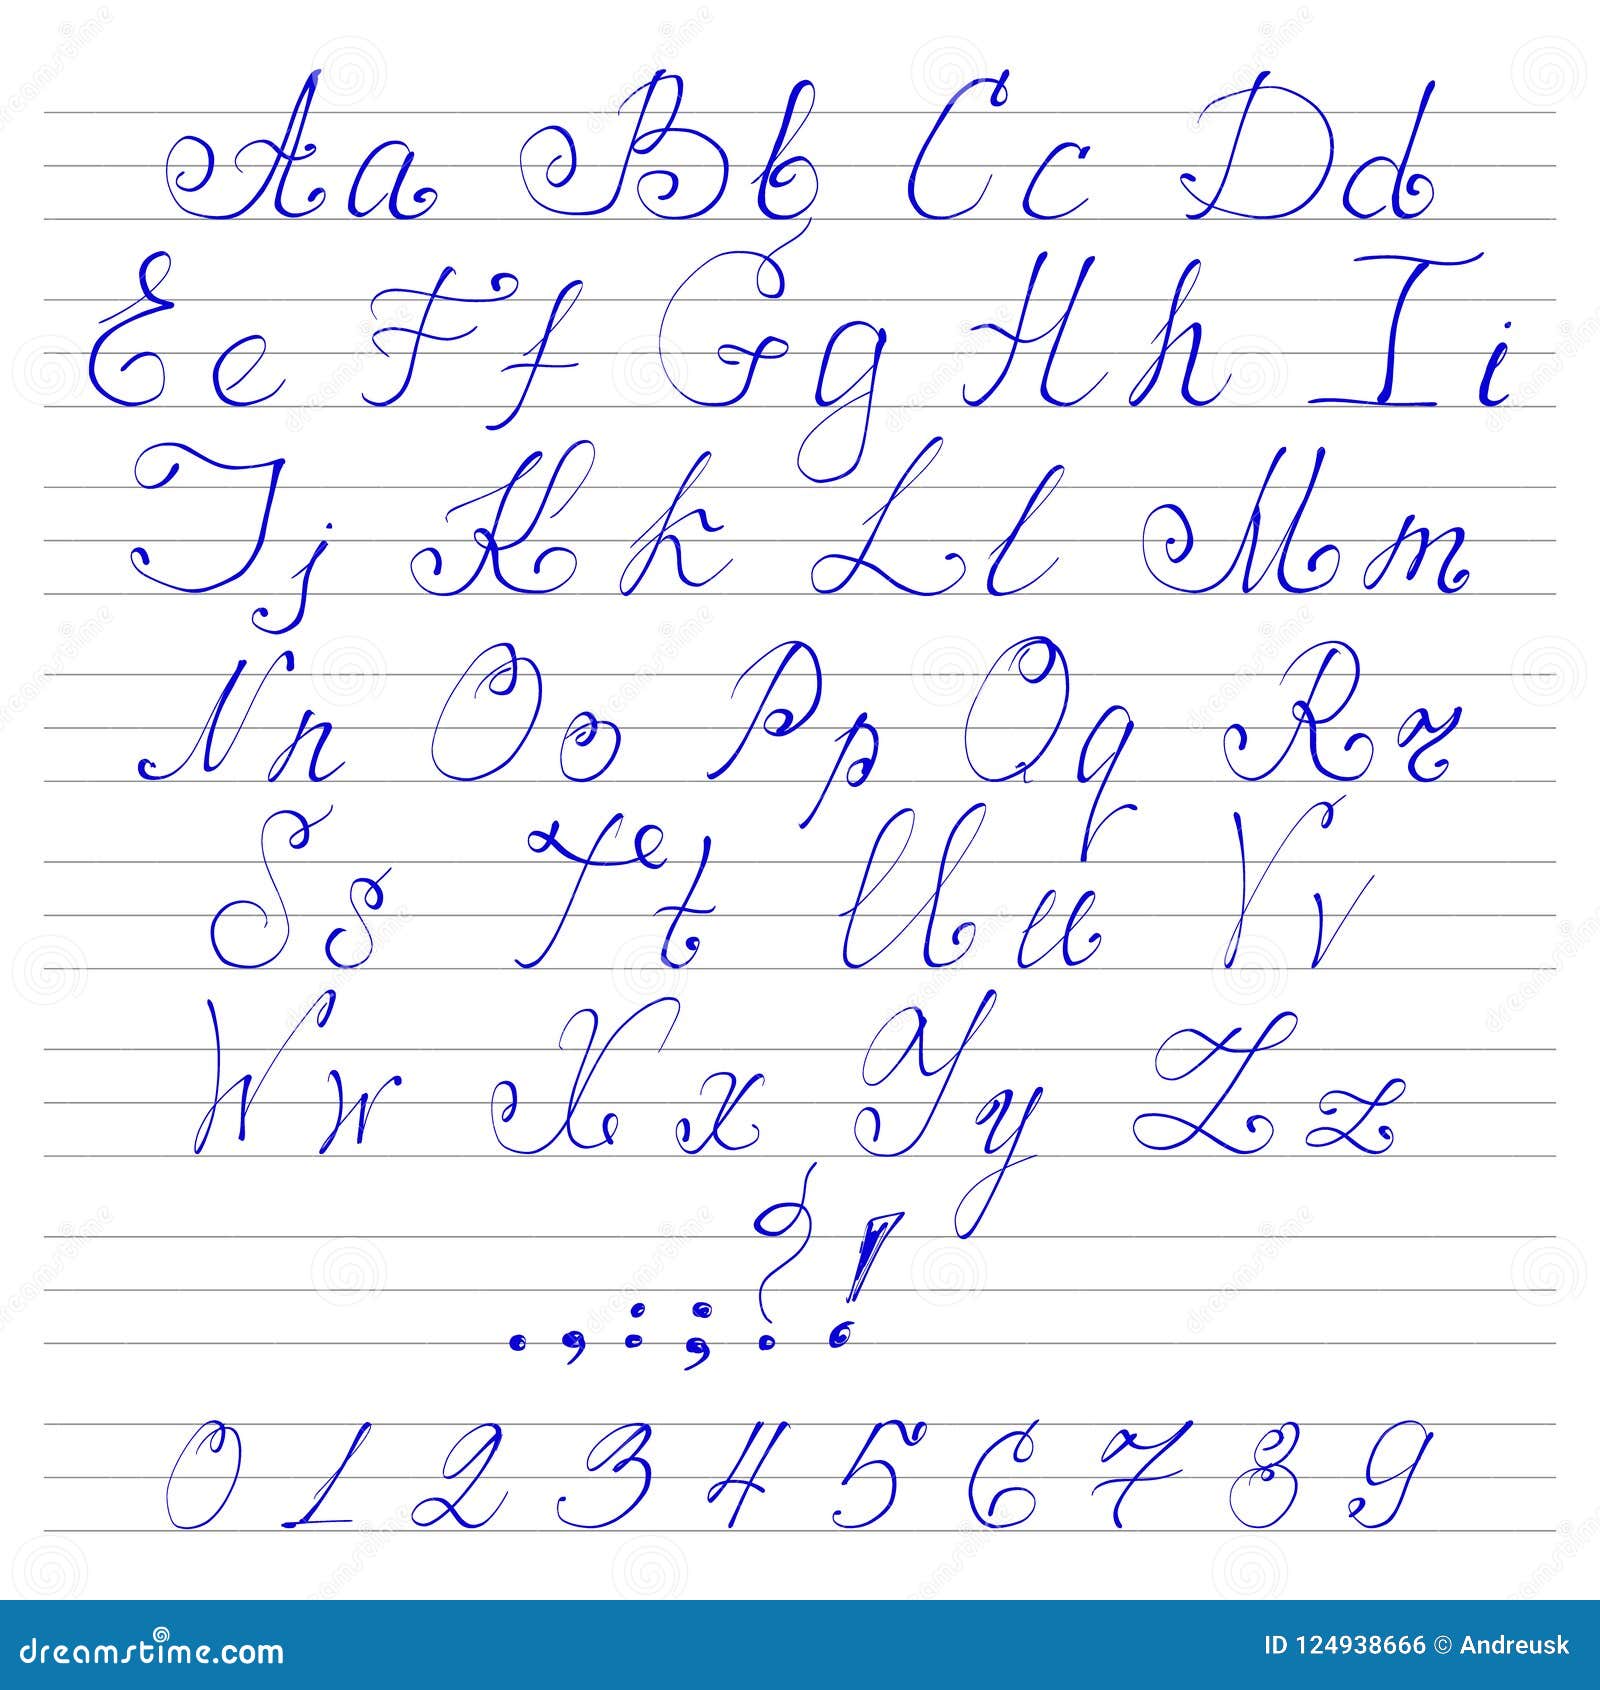 Aa Bb Cc Dd
Ee Ff Gg Hh Ii
Jj Kk Ll Mm
Nn Oo Pp Qq Rr
Ss Tt Uu Vv
Ww Xx Yy Zz
. , : ; ? !
0 1 2 3 4 5 6 7 8 9
dreamstime.com
ID 124938666 © Andreusk